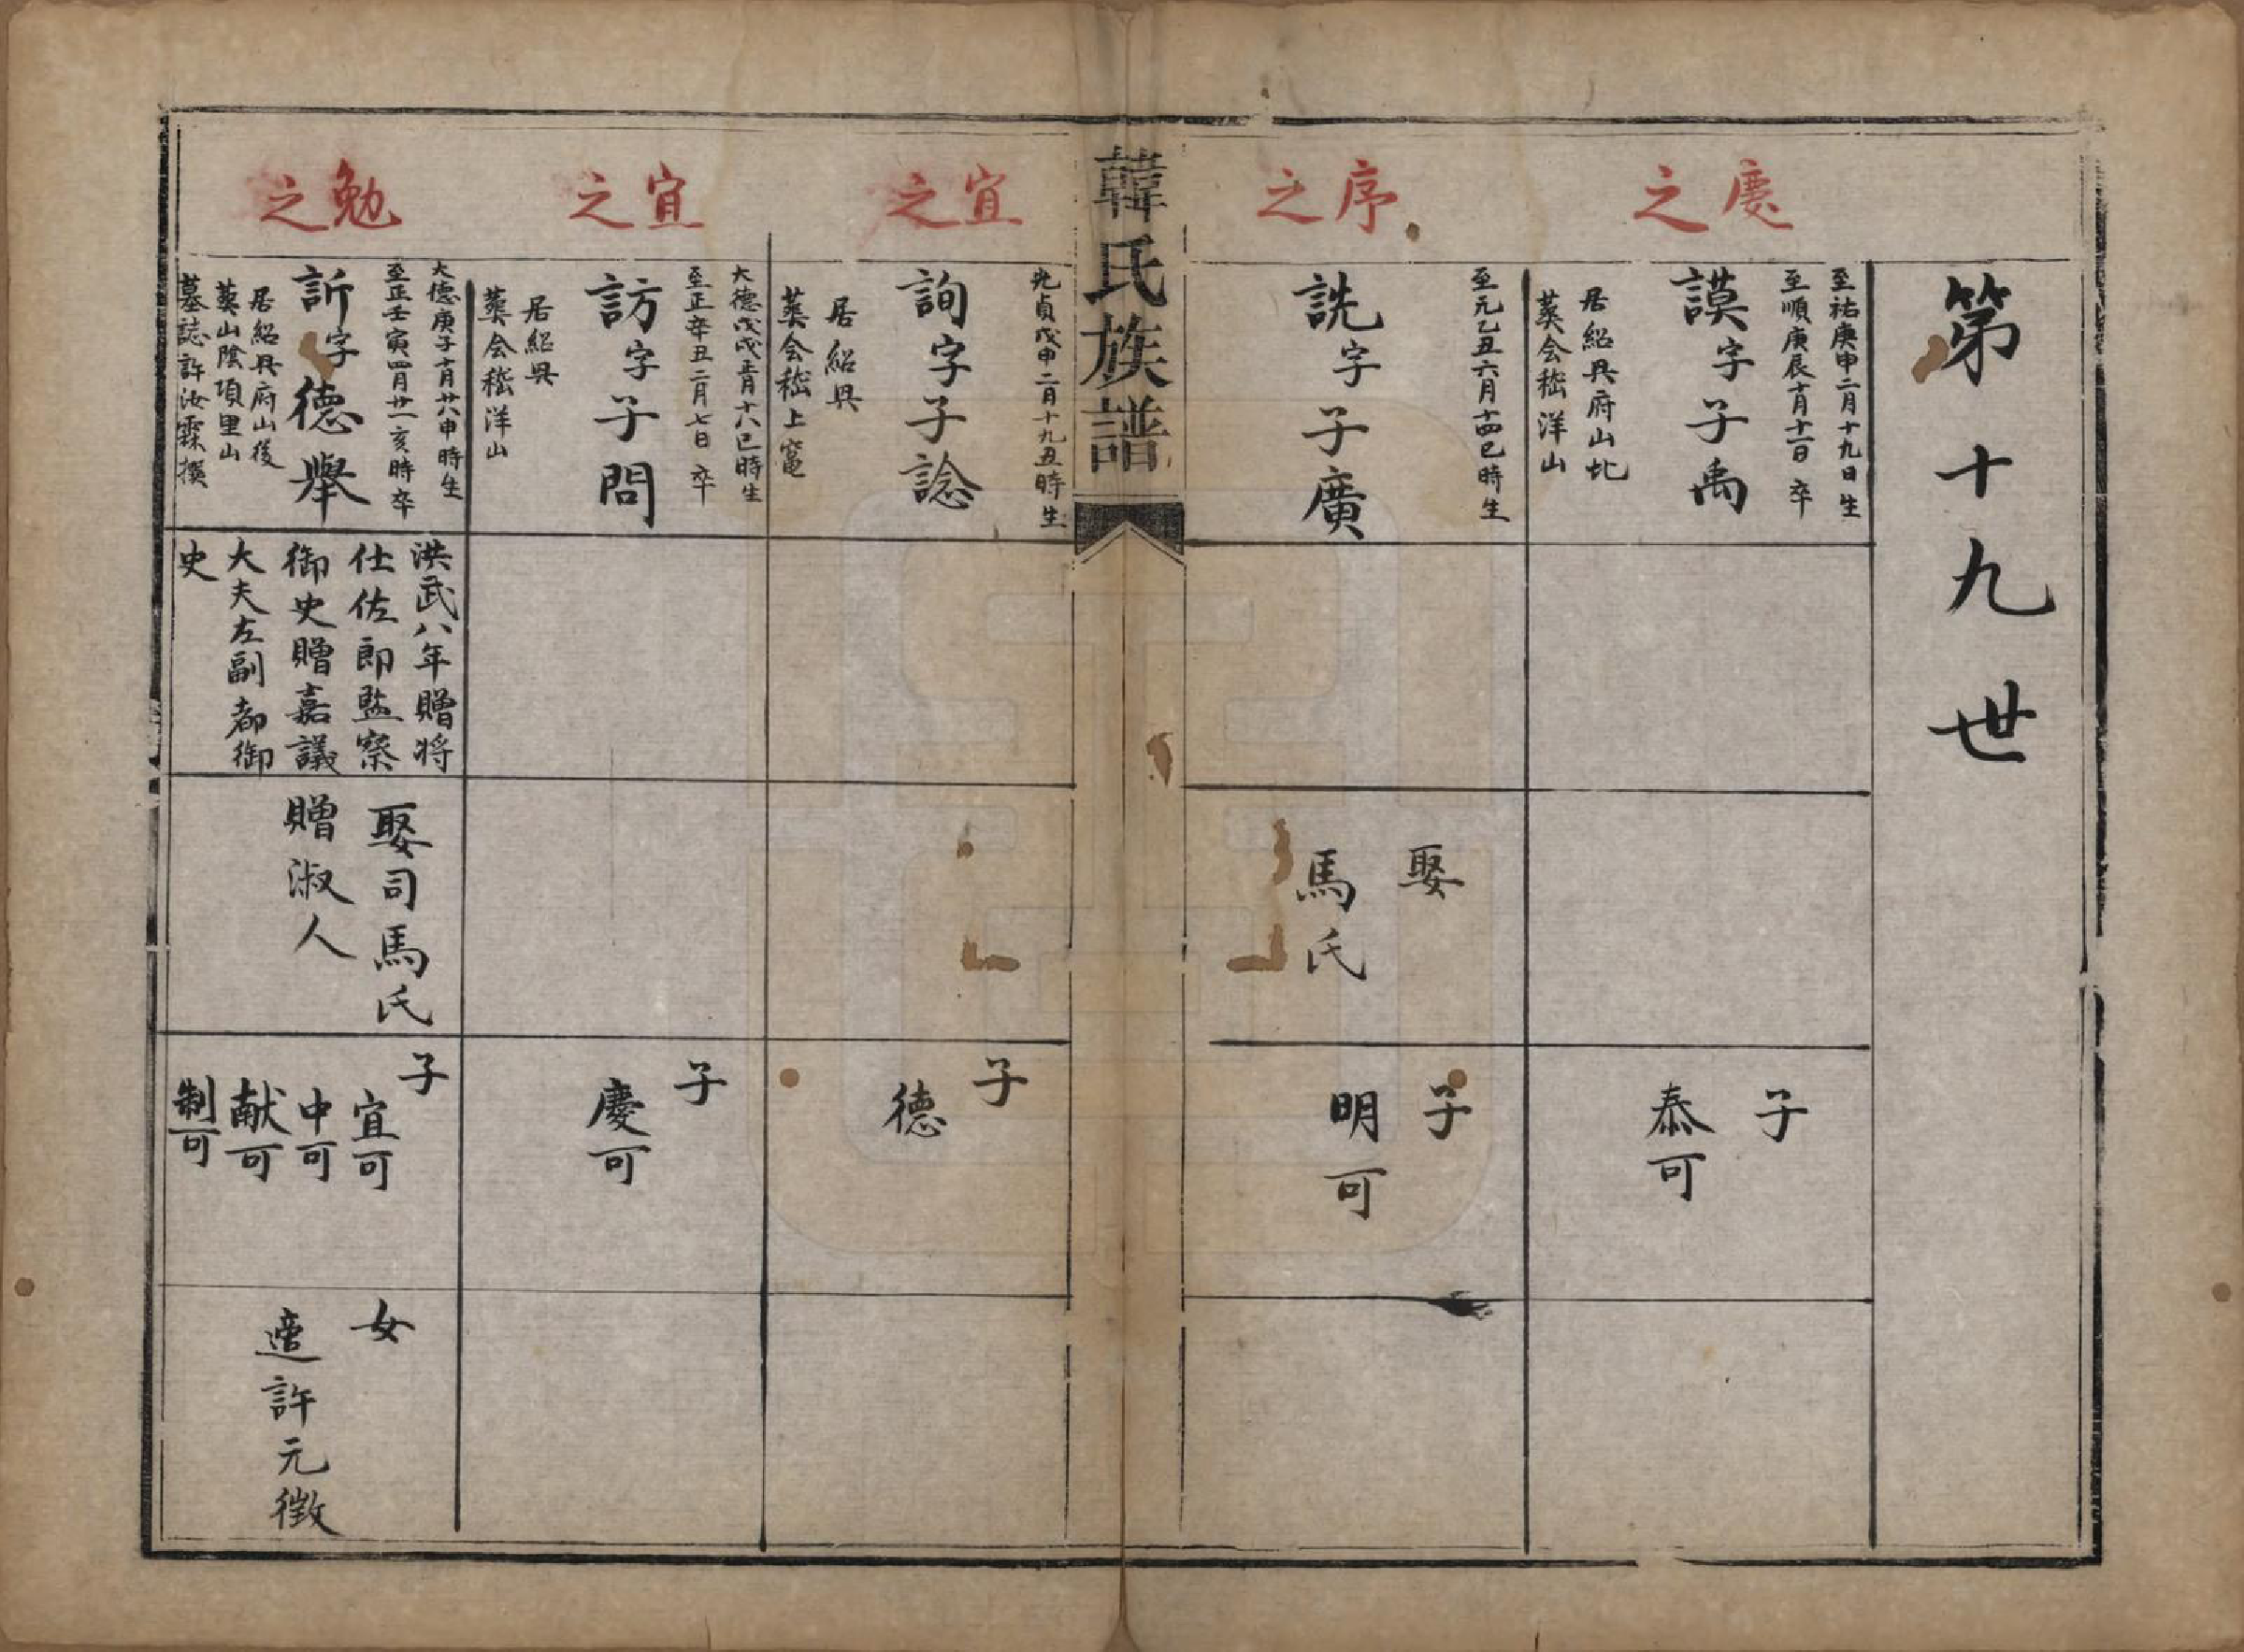 第十九世
慶之
至祐庚申二月十九日生
至順庚辰十月十一日卒
謨字子禹
居紹興府山北
葬会嵇洋山
子
泰可
序之
至元乙丑六月十四巳時生
詵字子廣
娶
馬氏
子
明可
韓氏族譜
宜之
元貞戊申二月十九丑時生
詢字子諗
居紹興
葬会嵇上竃
子
德
宜之
大德戊戌五月十八巳時生
至正辛丑二月七日卒
訪字子問
居紹興
葬会嵇洋山
子
慶可
勉之
大德庚子十月廿八申時生
至正壬寅四月廿一亥時卒
訢字德舉
居紹興府山後
葬山陰項里山
墓誌許汝霖撰
洪武八年贈将
仕佐郎監察
御史贈嘉議
大夫左副都御
史
娶司馬氏
贈淑人
子
宜可
中可
献可
制可
女
適許元徵